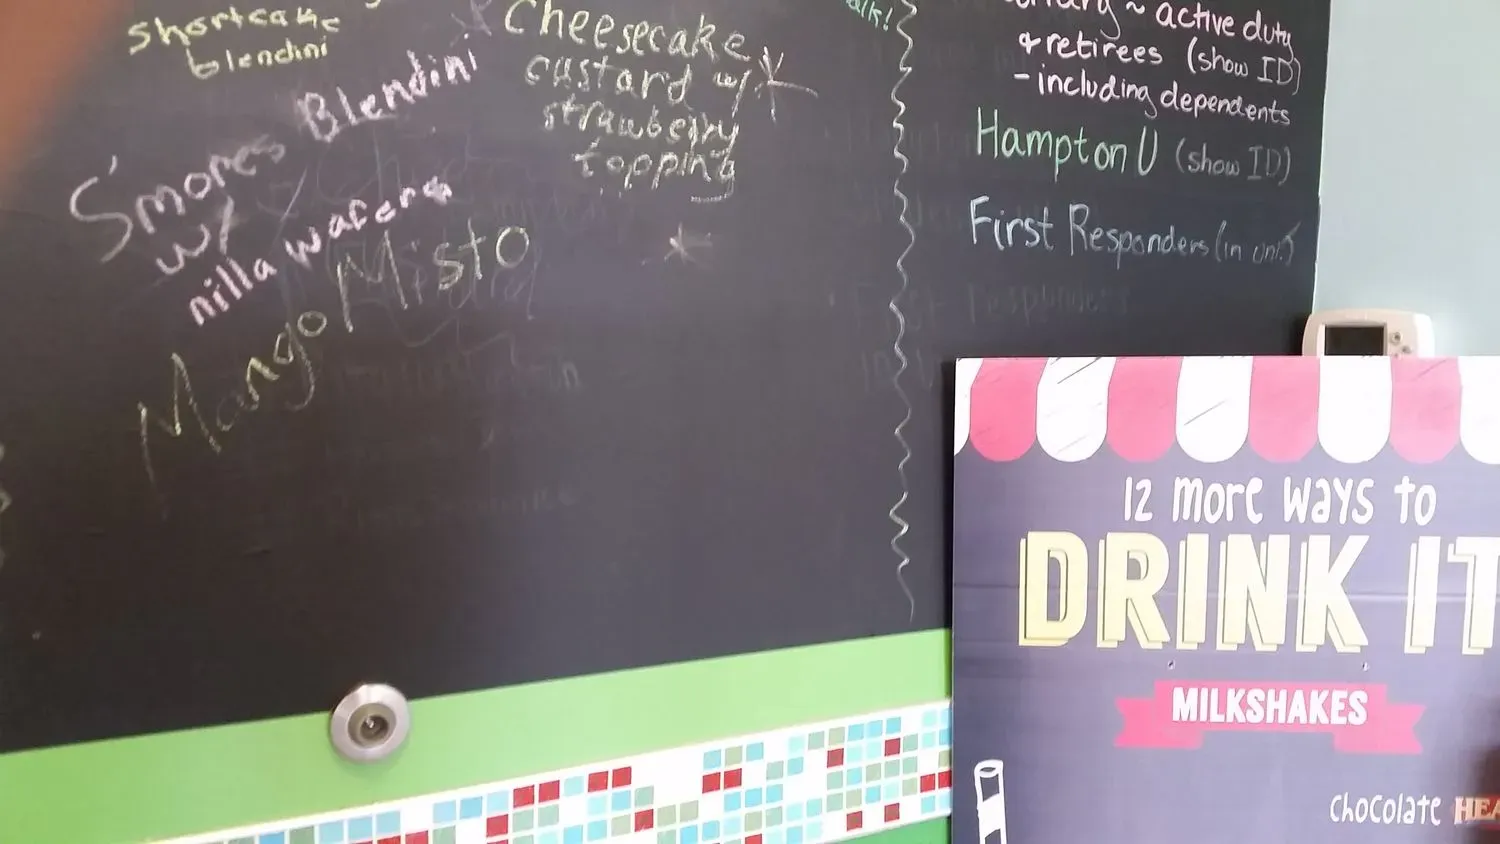 shortcake
blendini
S'mores Blendini
w/
nilla wafers
Mango Misto
Cheesecake
custard w/
strawberry
topping
~ active duty
& retirees (show ID)
- including dependents
Hampton U (show ID)
First Responders (in uni.)
12 more ways to
DRINK IT
MILKSHAKES
chocolate